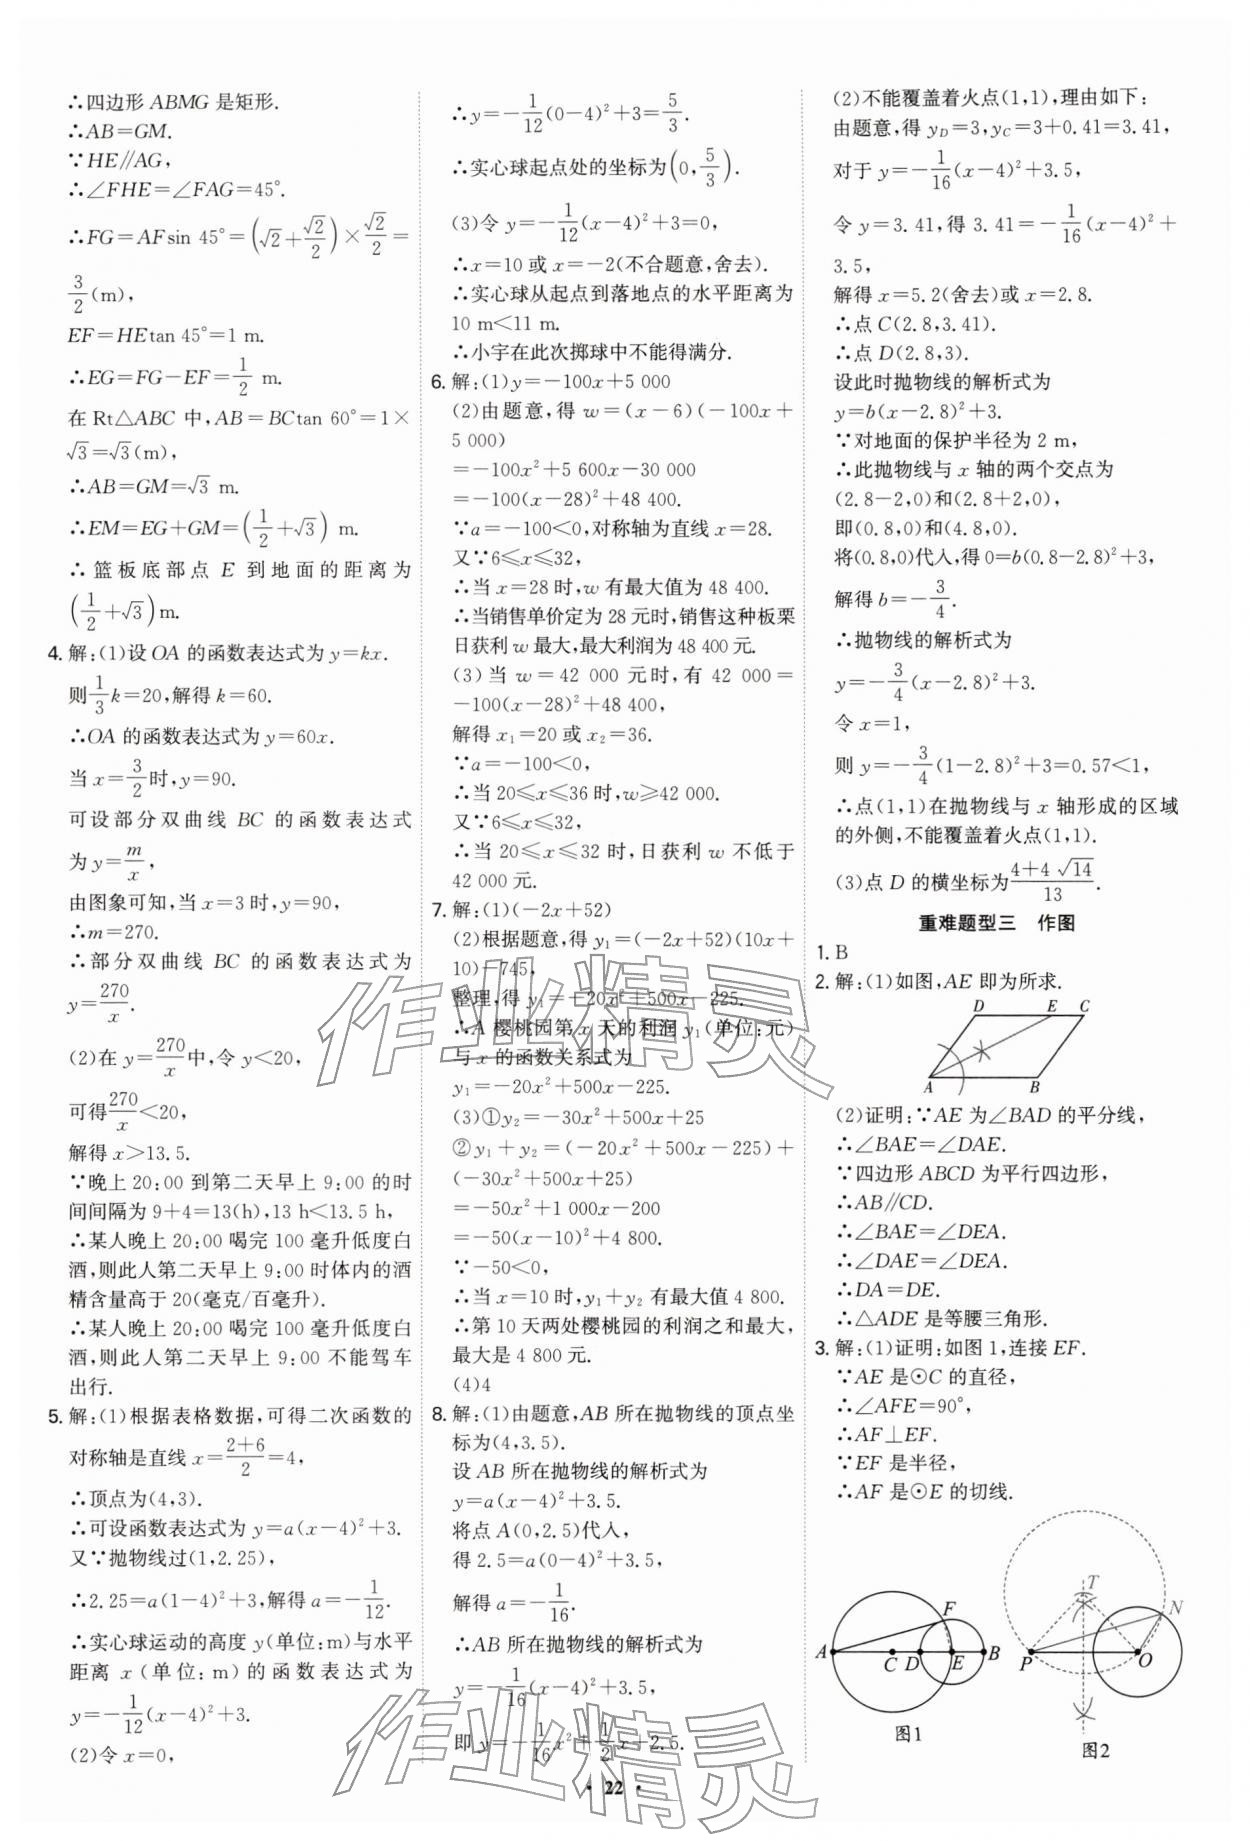 ∴四边形 ABMG 是矩形.
∴AB=GM.
∵HE∥AG,
∴∠FHE=∠FAG=45°.
∴FG=AFsin 45°=(√2+√2/2)×√2/2=
3/2(m),
EF=HEtan 45°=1 m.
∴EG=FG-EF=1/2 m.
在 Rt△ABC 中,AB=BCtan 60°=1×
√3=√3(m),
∴AB=GM=√3 m.
∴EM=EG+GM=(1/2+√3) m.
∴篮板底部点 E 到地面的距离为
(1/2+√3)m.
4. 解:(1)设 OA 的函数表达式为 y=kx.
则1/3k=20,解得 k=60.
∴OA 的函数表达式为 y=60x.
当 x=3/2时,y=90.
可设部分双曲线 BC 的函数表达式
为 y=m/x,
由图象可知,当 x=3 时,y=90,
∴m=270.
∴部分双曲线 BC 的函数表达式为
y=270/x.
(2)在 y=270/x中,令 y<20,
可得270/x<20,
解得 x>13.5.
∵晚上 20:00 到第二天早上 9:00 的时
间间隔为 9+4=13(h),13 h<13.5 h,
∴某人晚上 20:00 喝完 100 毫升低度白
酒,则此人第二天早上 9:00 时体内的酒
精含量高于 20(毫克/百毫升).
∴某人晚上 20:00 喝完 100 毫升低度白
酒,则此人第二天早上 9:00 不能驾车
出行.
5. 解:(1)根据表格数据,可得二次函数的
对称轴是直线 x=(2+6)/2=4,
∴顶点为(4,3).
∴可设函数表达式为 y=a(x-4)²+3.
又∵抛物线过(1,2.25),
∴2.25=a(1-4)²+3,解得 a=-1/12.
∴实心球运动的高度 y(单位:m)与水平
距离 x(单位:m)的函数表达式为
y=-1/12(x-4)²+3.
(2)令 x=0,
∴y=-1/12(0-4)²+3=5/3.
∴实心球起点处的坐标为(0,5/3).
(3)令 y=-1/12(x-4)²+3=0,
∴x=10 或 x=-2(不合题意,舍去).
∴实心球从起点到落地点的水平距离为
10 m<11 m.
∴小宇在此次掷球中不能得满分.
6. 解:(1)y=-100x+5 000
(2)由题意,得 w=(x-6)(-100x+
5 000)
=-100x²+5 600x-30 000
=-100(x-28)²+48 400.
∵a=-100<0,对称轴为直线 x=28.
又∵6≤x≤32,
∴当 x=28 时,w 有最大值为 48 400.
∴当销售单价定为 28 元时,销售这种板栗
日获利 w 最大,最大利润为 48 400 元.
(3)当 w=42 000 元时,有 42 000=
-100(x-28)²+48 400,
解得 x₁=20 或 x₂=36.
∵a=-100<0,
∴当 20≤x≤36 时,w≥42 000.
又∵6≤x≤32,
∴当 20≤x≤32 时,日获利 w 不低于
42 000 元.
7. 解:(1)(-2x+52)
(2)根据题意,得 y₁=(-2x+52)(10x+
10)-745,
整理,得 y₁=-20x²+500x-225.
∴A 樱桃园第 x 天的利润 y₁(单位:元)
与 x 的函数关系式为
y₁=-20x²+500x-225.
(3)①y₂=-30x²+500x+25
②y₁+y₂=(-20x²+500x-225)+
(-30x²+500x+25)
=-50x²+1 000x-200
=-50(x-10)²+4 800.
∵-50<0,
∴当 x=10 时,y₁+y₂ 有最大值 4 800.
∴第 10 天两处樱桃园的利润之和最大,
最大是 4 800 元.
(4)4
8. 解:(1)由题意,AB 所在抛物线的顶点坐
标为(4,3.5).
设 AB 所在抛物线的解析式为
y=a(x-4)²+3.5.
将点 A(0,2.5)代入,
得 2.5=a(0-4)²+3.5,
解得 a=-1/16.
∴AB 所在抛物线的解析式为
y=-1/16(x-4)²+3.5,
即 y=-1/16x²+1/2x+2.5.
(2)不能覆盖着火点(1,1),理由如下:
由题意,得 y_D=3,y_C=3+0.41=3.41,
对于 y=-1/16(x-4)²+3.5,
令 y=3.41,得 3.41=-1/16(x-4)²+
3.5,
解得 x=5.2(舍去)或 x=2.8.
∴点 C(2.8,3.41).
∴点 D(2.8,3).
设此时抛物线的解析式为
y=b(x-2.8)²+3.
∵对地面的保护半径为 2 m,
∴此抛物线与 x 轴的两个交点为
(2.8-2,0)和(2.8+2,0),
即(0.8,0)和(4.8,0).
将(0.8,0)代入,得 0=b(0.8-2.8)²+3,
解得 b=-3/4.
∴抛物线的解析式为
y=-3/4(x-2.8)²+3.
令 x=1,
则 y=-3/4(1-2.8)²+3=0.57<1,
∴点(1,1)在抛物线与 x 轴形成的区域
的外侧,不能覆盖着火点(1,1).
(3)点 D 的横坐标为(4+4√14)/13.
重难题型三 作图
1. B
2. 解:(1)如图,AE 即为所求.
D E C
A B
(2)证明:∵AE 为∠BAD 的平分线,
∴∠BAE=∠DAE.
∵四边形 ABCD 为平行四边形,
∴AB∥CD.
∴∠BAE=∠DEA.
∴∠DAE=∠DEA.
∴DA=DE.
∴△ADE 是等腰三角形.
3. 解:(1)证明:如图 1,连接 EF.
∵AE 是⊙C 的直径,
∴∠AFE=90°,
∴AF⊥EF.
∵EF 是半径,
∴AF 是⊙E 的切线.
F
A C D E B
图1
T
N
P O
图2
· 22 ·
作业精灵
作业精灵